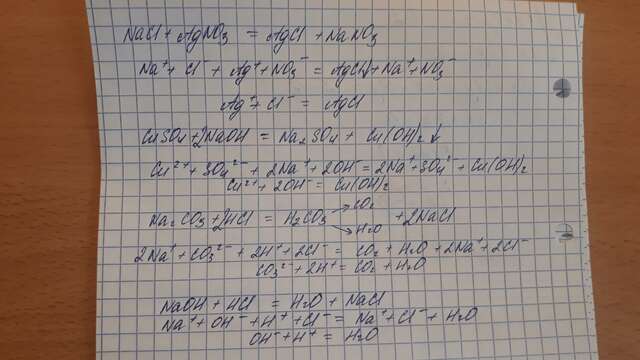 NaCl + AgNO₃ = AgCl + NaNO₃
Na⁺ + Cl⁻ + Ag⁺ + NO₃⁻ = AgCl↓ + Na⁺ + NO₃⁻
Ag⁺ + Cl⁻ = AgCl
CuSO₄ + 2NaOH = Na₂SO₄ + Cu(OH)₂↓
Cu²⁺ + SO₄²⁻ + 2Na⁺ + 2OH⁻ = 2Na⁺ + SO₄²⁻ + Cu(OH)₂
Cu²⁺ + 2OH⁻ = Cu(OH)₂
Na₂CO₃ + 2HCl = H₂CO₃ → CO₂ + 2NaCl
→ H₂O
2Na⁺ + CO₃²⁻ + 2H⁺ + 2Cl⁻ = CO₂ + H₂O + 2Na⁺ + 2Cl⁻
CO₃²⁻ + 2H⁺ = CO₂ + H₂O
NaOH + HCl = H₂O + NaCl
Na⁺ + OH⁻ + H⁺ + Cl⁻ = Na⁺ + Cl⁻ + H₂O
OH⁻ + H⁺ = H₂O